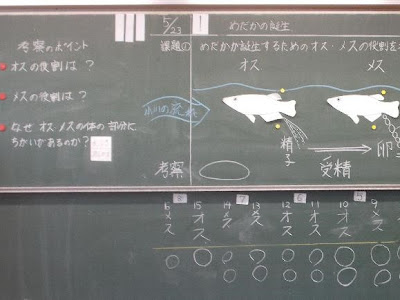 考察のポイント
オスの役割は?
メスの役割は?
なぜ オス メスの体の部分に
ちがいがあるのか?
5/23
1 めだかの誕生
課題① めだかが誕生するためのオス・メスの役割を
オス
メス
精子
受精
卵
考察
8 7 6 5
16 メス
15 オス
14 メス
13 メス
12 オス
11 オス
10 オス
9 メス
オ